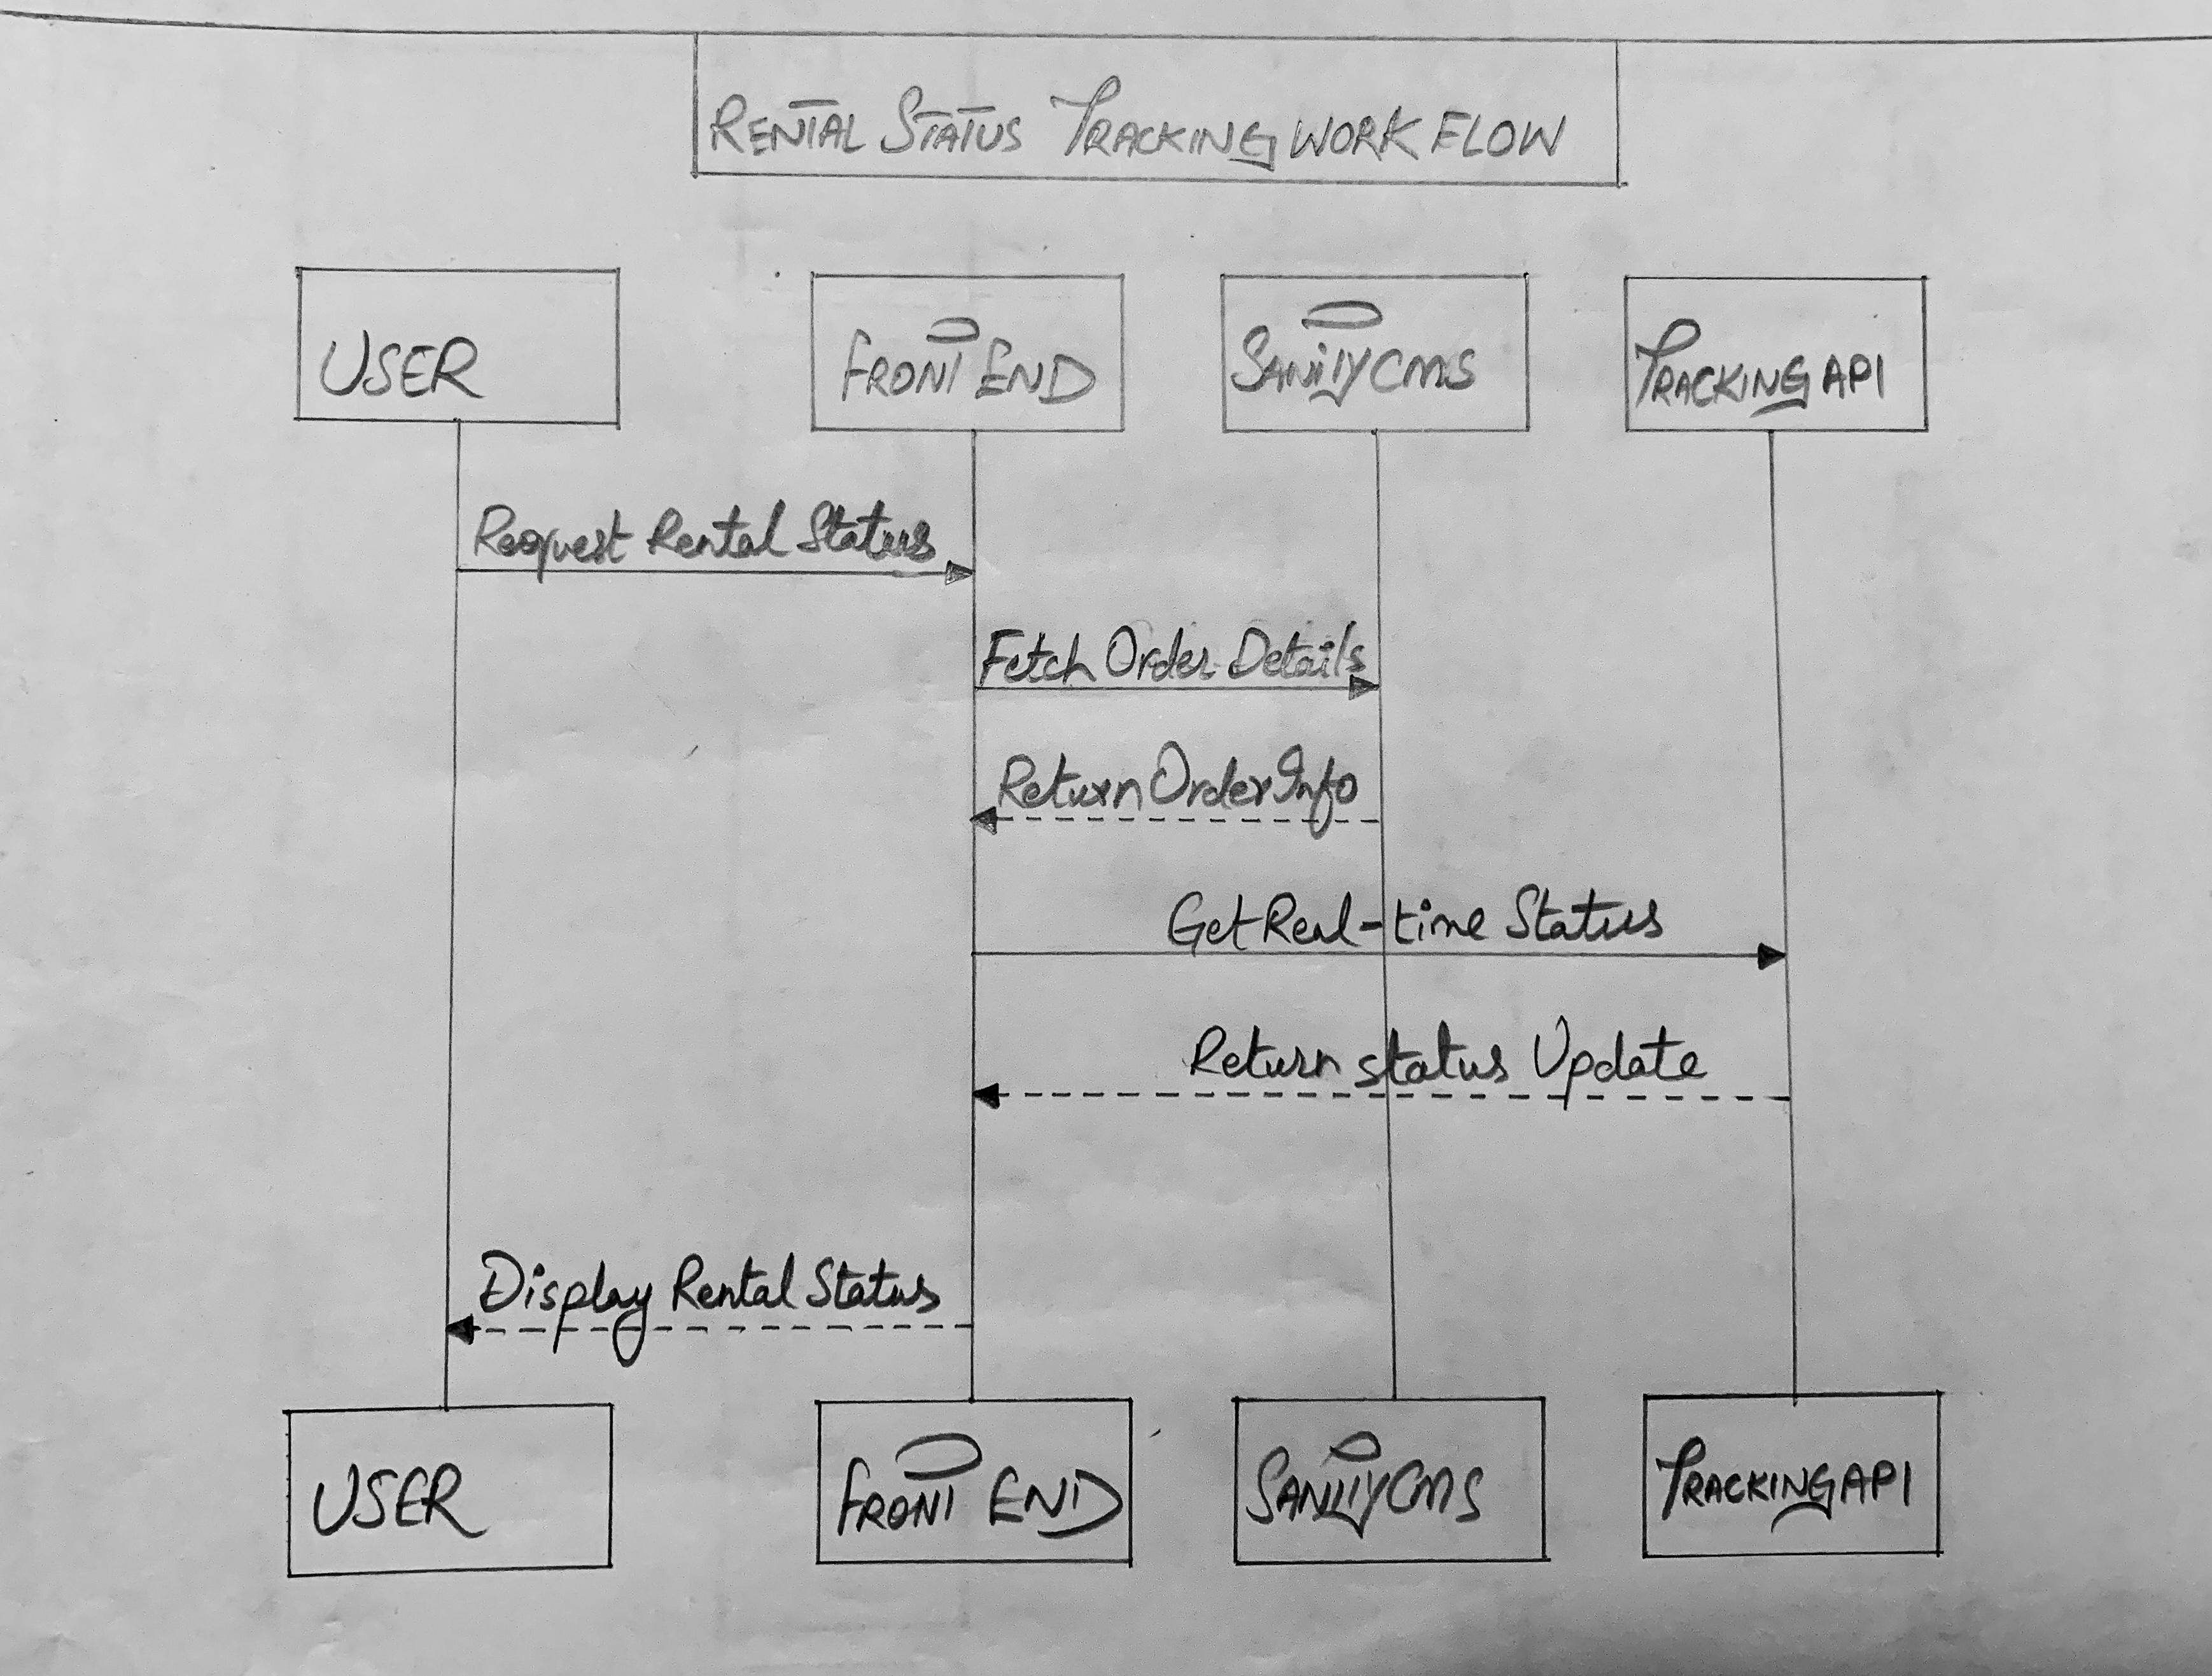 RENTAL STATUS TRACKING WORK FLOW
USER
FRONT END
SANITY CMS
TRACKING API
Request Rental Status
Fetch Order Details
Return Order Info
Get Real-time Status
Return status Update
Display Rental Status
USER
FRONT END
SANITY CMS
TRACKING API